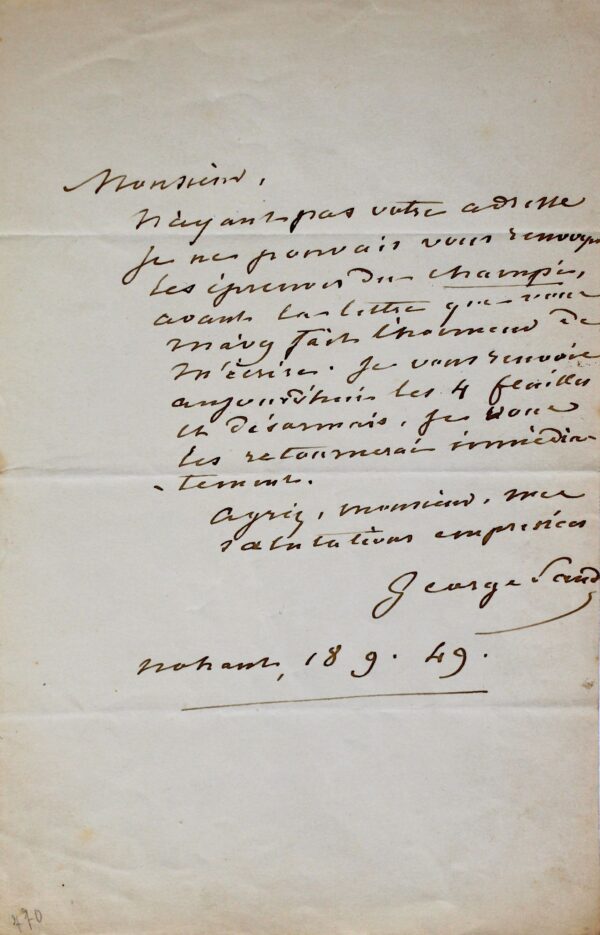 Monsieur,
N'ayant pas votre adresse
je ne pouvais vous renvoyer
les épreuves du champi,
avant la lettre que vous
m'avez fait l'honneur de
m'écrire. Je vous renvoie
aujourd'hui les 4 feuilles
et désormais, je vous
les retournerai immédia
-tement.
Agréez, monsieur, mes
salutations empressées
George Sand
Nohant, 18 9. 49.
470